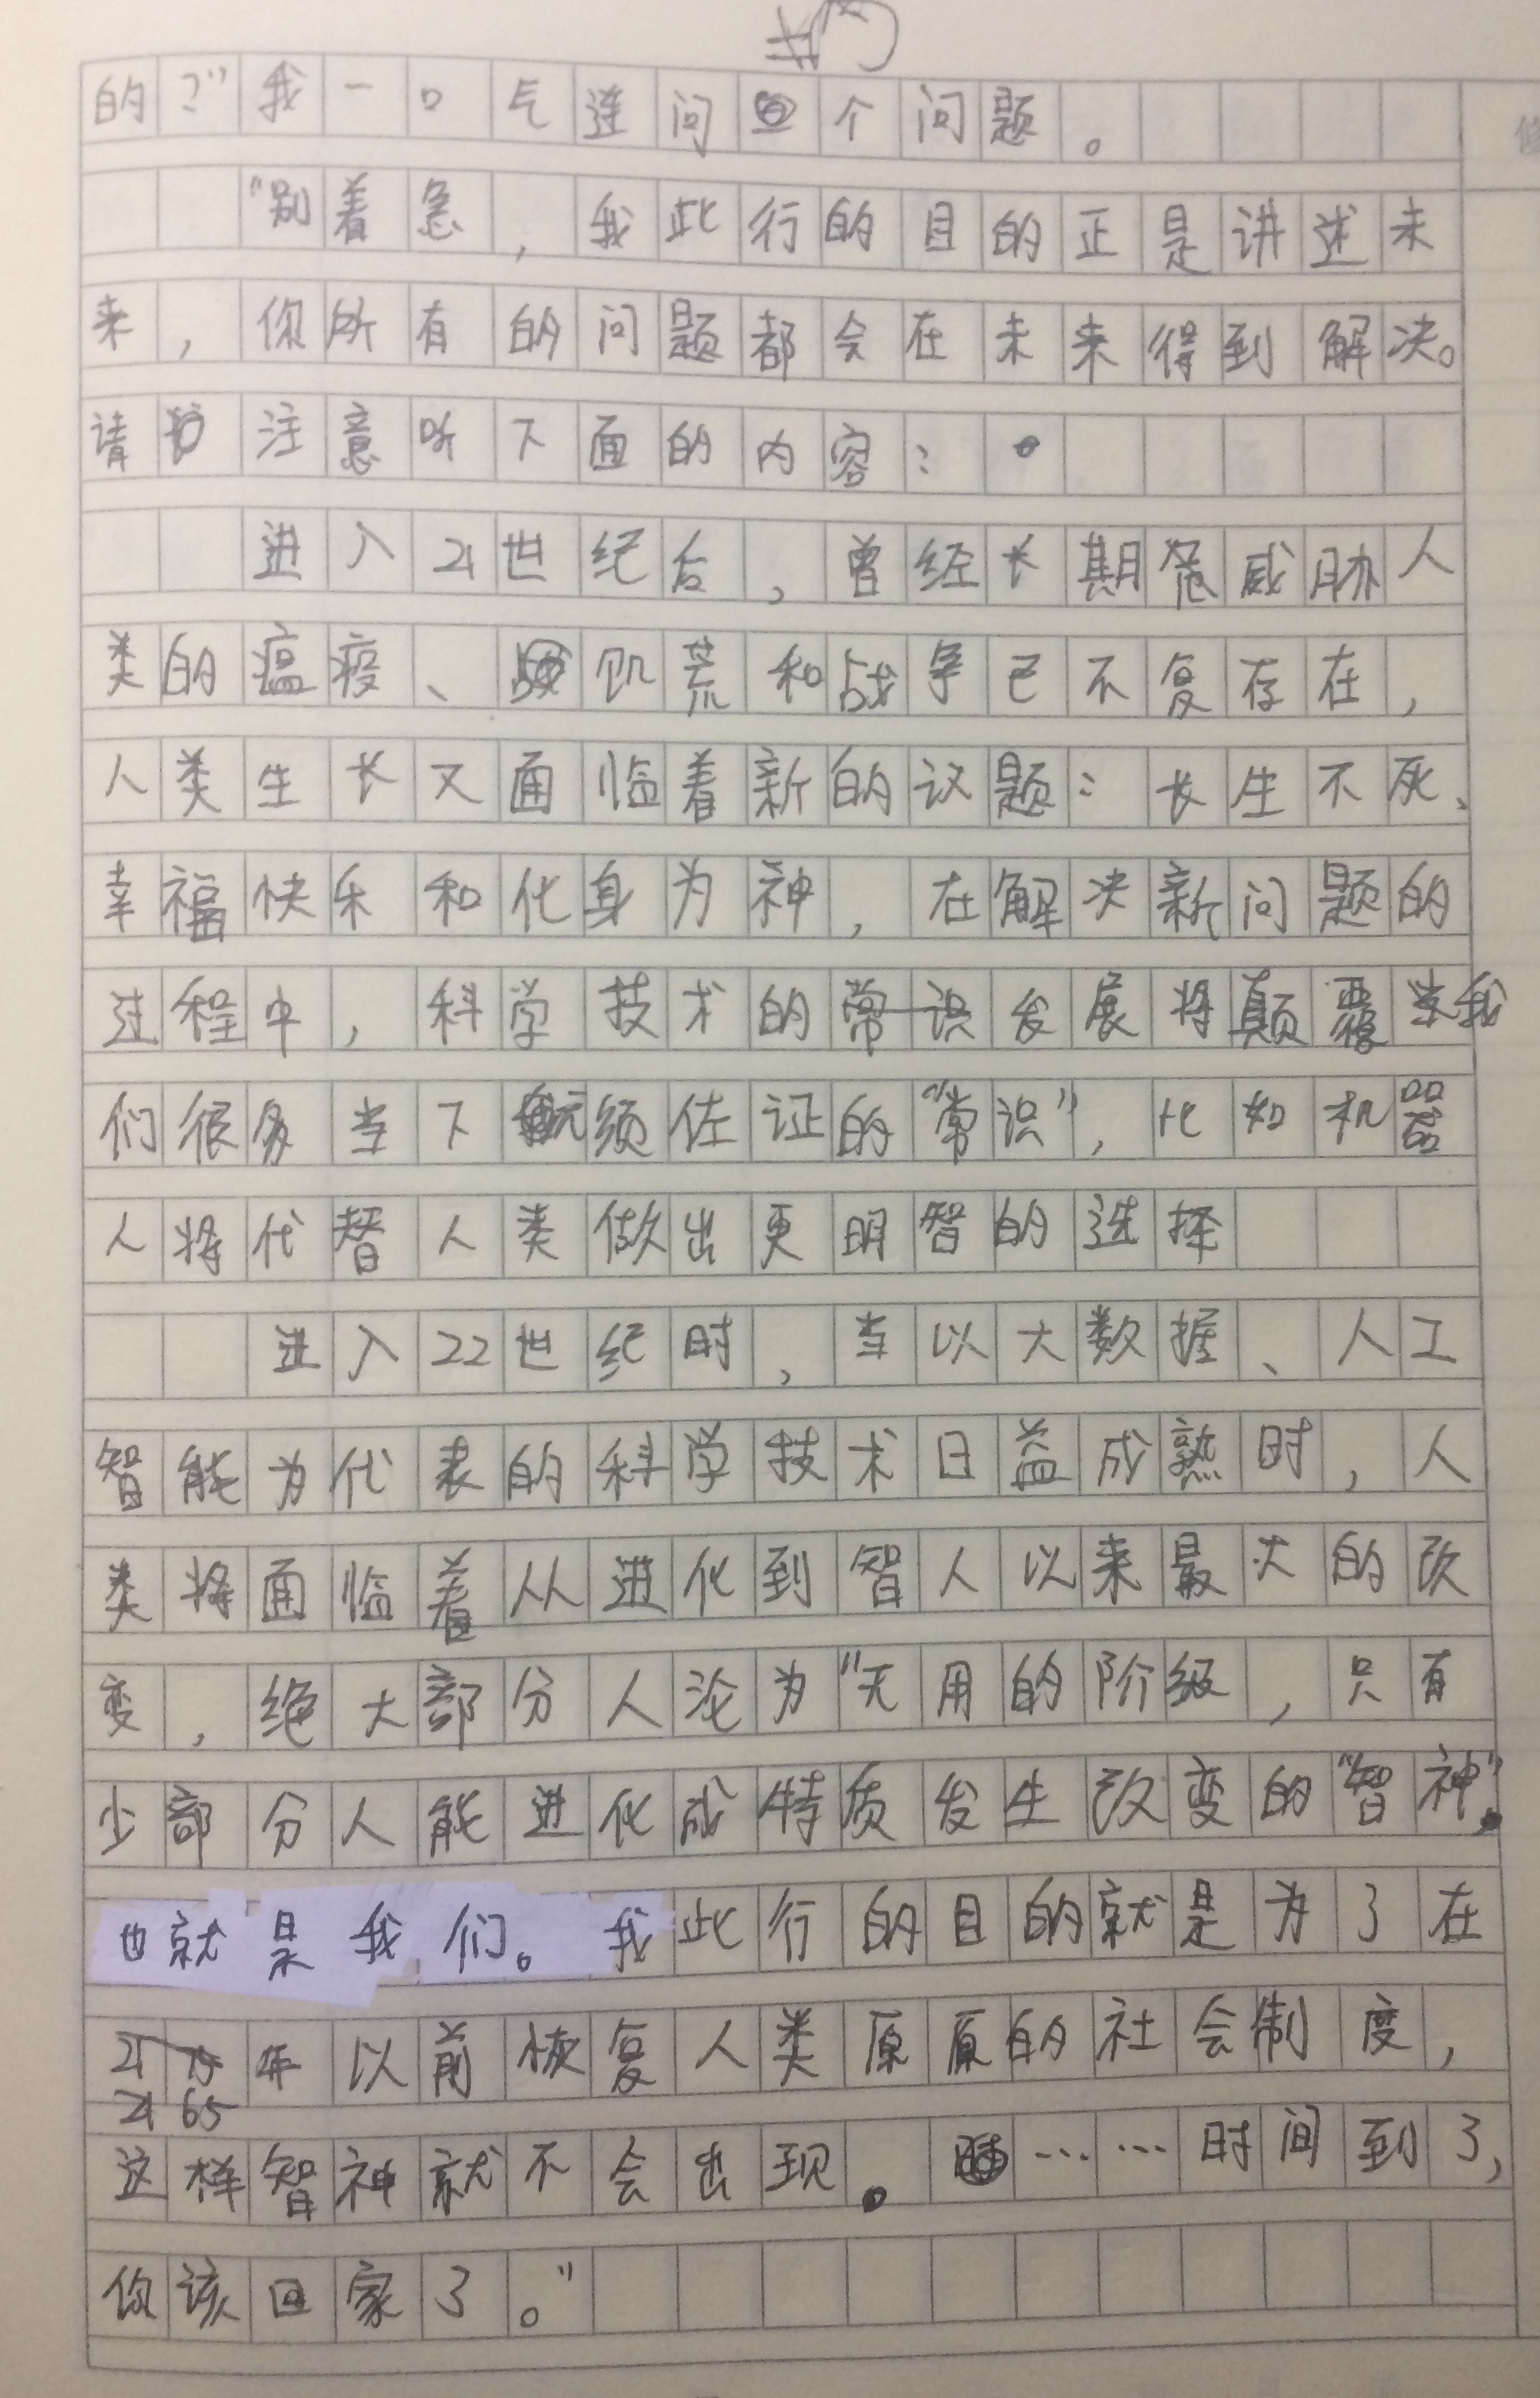 的？”我一口气连问四个问题。
“别着急，我此行的目的正是讲述未
来，你所有的问题都会在未来得到解决。
请注意听下面的内容：
进入21世纪后，曾经长期危威胁人
类的瘟疫、饥荒和战争已不复存在，
人类生长又面临着新的议题：长生不死、
幸福快乐和化身为神，在解决新问题的
过程中，科学技术的常识发展将颠覆我
们很多当下无须佐证的“常识”，比如机器
人将代替人类做出更明智的选择
进入22世纪时，当以大数据、人工
智能为代表的科学技术日益成熟时，人
类将面临着从进化到智人以来最大的改
变，绝大部分人沦为“无用的阶级，只有
少部分人能进化成特质发生改变的“智神”。
也就是我们。我此行的目的就是为了在
年以前恢复人类原原的社会制度，
2165
这样智神就不会出现。……时间到了，
你该回家了。”